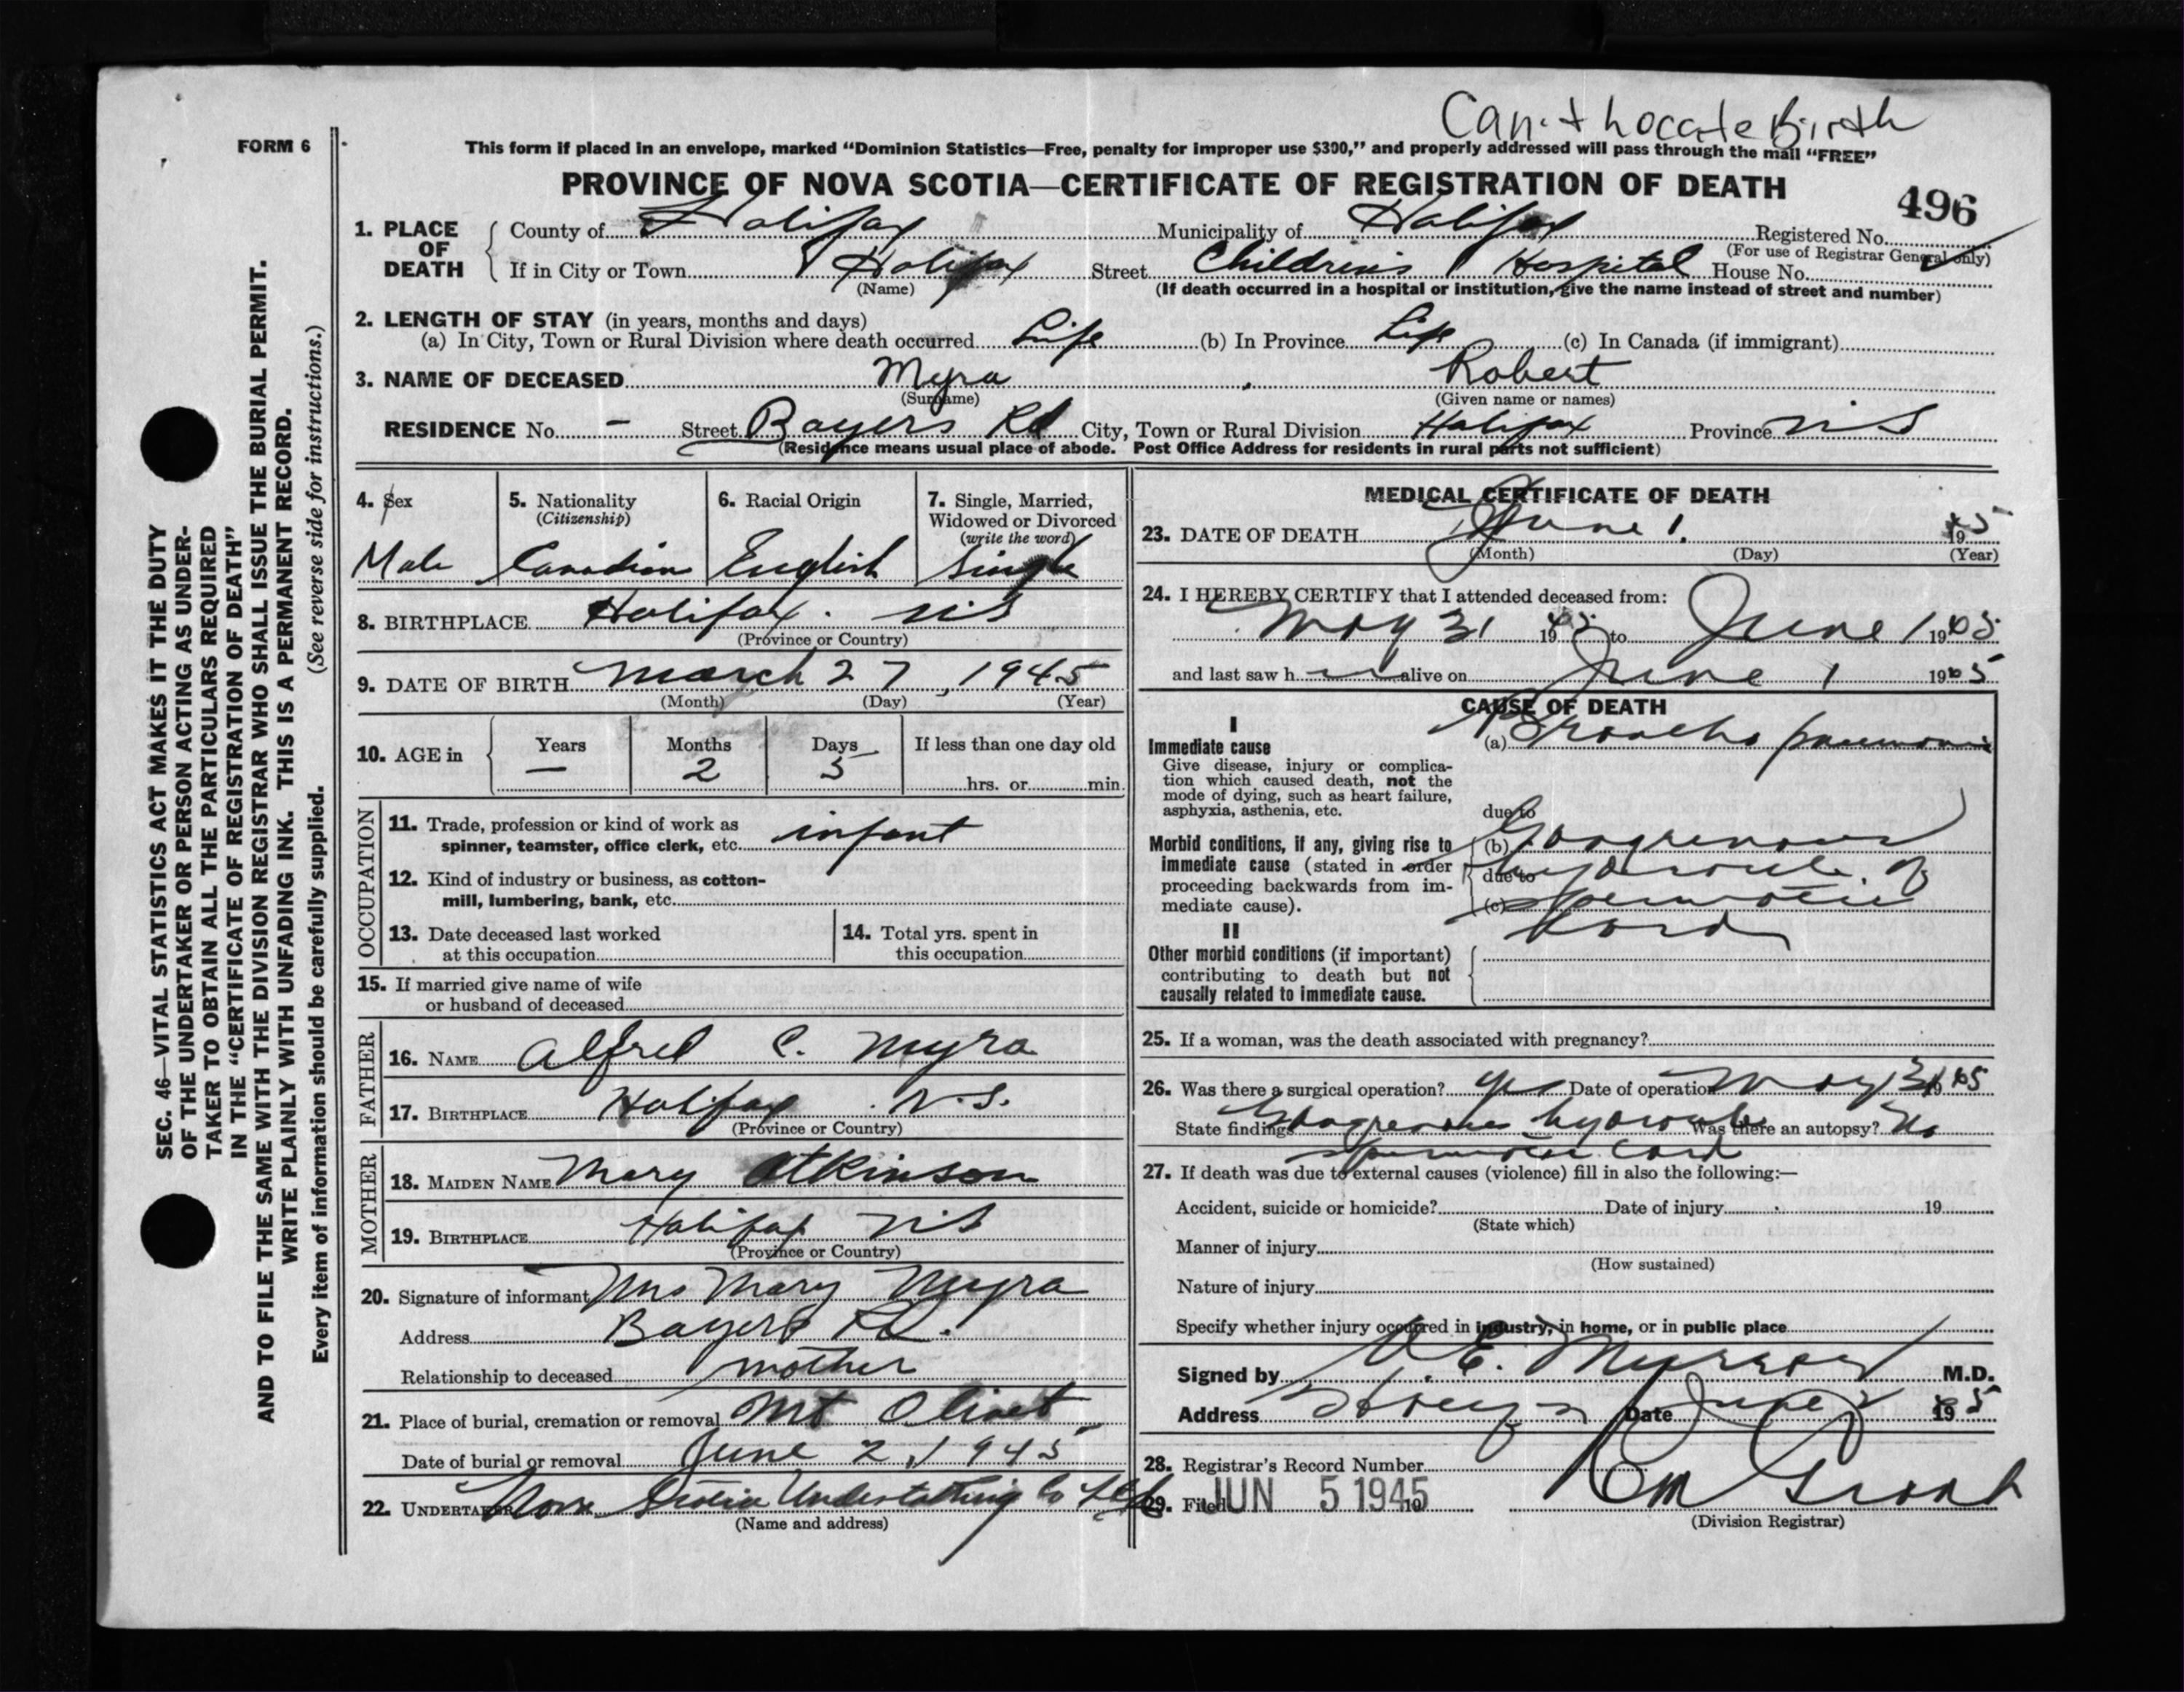 Can't Locate Birth
FORM 6
This form if placed in an envelope, marked “Dominion Statistics—Free, penalty for improper use $300,” and properly addressed will pass through the mail “FREE”
PROVINCE OF NOVA SCOTIA—CERTIFICATE OF REGISTRATION OF DEATH
496
1. PLACE OF DEATH
County of Halifax Municipality of Halifax Registered No.
(For use of Registrar General only)
If in City or Town Halifax Street Children's Hospital House No.
(Name) (If death occurred in a hospital or institution, give the name instead of street and number)
2. LENGTH OF STAY (in years, months and days)
(a) In City, Town or Rural Division where death occurred Life (b) In Province Life (c) In Canada (if immigrant)
3. NAME OF DECEASED Myra, Robert
(Surname) (Given name or names)
RESIDENCE No. - Street Bayers Rd City, Town or Rural Division Halifax Province N.S
(Residence means usual place of abode. Post Office Address for residents in rural parts not sufficient)
4. Sex 5. Nationality (Citizenship) 6. Racial Origin 7. Single, Married, Widowed or Divorced (write the word)
Male Canadian English Single
8. BIRTHPLACE Halifax. N.S
(Province or Country)
9. DATE OF BIRTH March 27, 1945
(Month) (Day) (Year)
10. AGE in Years Months Days If less than one day old
— 2 5 hrs. or min.
OCCUPATION
11. Trade, profession or kind of work as
spinner, teamster, office clerk, etc. infant
12. Kind of industry or business, as cotton-
mill, lumbering, bank, etc.
13. Date deceased last worked
at this occupation
14. Total yrs. spent in
this occupation
15. If married give name of wife
or husband of deceased
FATHER
16. NAME Alfred C. Myra
17. BIRTHPLACE Halifax. N.S.
(Province or Country)
MOTHER
18. MAIDEN NAME Mary Atkinson
19. BIRTHPLACE Halifax N.S
(Province or Country)
20. Signature of informant Mrs Mary Myra
Address Bayers Rd.
Relationship to deceased mother
21. Place of burial, cremation or removal Mt Olivet
Date of burial or removal June 2, 1945
22. UNDERTAKER Nova Scotia Undertaking Co
(Name and address)
MEDICAL CERTIFICATE OF DEATH
23. DATE OF DEATH June 1. 1945
(Month) (Day) (Year)
24. I HEREBY CERTIFY that I attended deceased from:
May 31 1945 to June 1 1945
and last saw h alive on June 1 1945
CAUSE OF DEATH
I
Immediate cause (a) Broncho pneumonia
Give disease, injury or complica-
tion which caused death, not the
mode of dying, such as heart failure,
asphyxia, asthenia, etc.
due to
Morbid conditions, if any, giving rise to (b) Gangrenous
immediate cause (stated in order due to hydrocele of
proceeding backwards from im-
mediate cause). (c) spermatic
cord
II
Other morbid conditions (if important)
contributing to death but not
causally related to immediate cause.
25. If a woman, was the death associated with pregnancy?
26. Was there a surgical operation? yes Date of operation May 31 1945
State findings Gangrenous hydrocele Was there an autopsy? No
spermatic cord
27. If death was due to external causes (violence) fill in also the following:—
Accident, suicide or homicide? Date of injury 19
(State which)
Manner of injury
(How sustained)
Nature of injury
Specify whether injury occurred in industry, in home, or in public place
Signed by E. Murray M.D.
Address Date June 2 1945
28. Registrar's Record Number
29. Filed JUN 5 1945 19
(Division Registrar)
SEC. 46—VITAL STATISTICS ACT MAKES IT THE DUTY
OF THE UNDERTAKER OR PERSON ACTING AS UNDER-
TAKER TO OBTAIN ALL THE PARTICULARS REQUIRED
IN THE “CERTIFICATE OF REGISTRATION OF DEATH”
AND TO FILE THE SAME WITH THE DIVISION REGISTRAR WHO SHALL ISSUE THE BURIAL PERMIT.
WRITE PLAINLY WITH UNFADING INK. THIS IS A PERMANENT RECORD.
Every item of information should be carefully supplied. (See reverse side for instructions.)